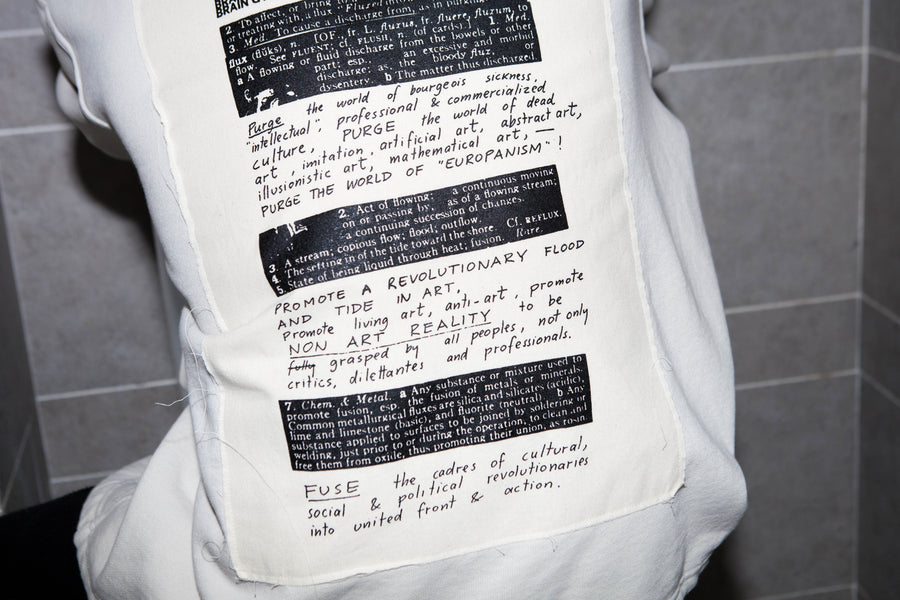 BRAIN
2. To affect, or bring to
or treating with, a flux. "Fluxed into
3. Med. To cause a discharge from, as in purging.
flux (flŭks), n. [OF., fr. L. fluxus, fr. fluere, fluxum to
flow. See FLUENT; cf. FLUSH, n. (of cards).] 1. Med.
a A flowing or fluid discharge from the bowels or other
part: esp., an excessive and morbid
discharge: as, the bloody flux, or
dysentery. b The matter thus discharged.
Purge the world of bourgeois sickness,
"intellectual", professional & commercialized
culture, PURGE the world of dead
art, imitation, artificial art, abstract art,
illusionistic art, mathematical art, —
PURGE THE WORLD OF "EUROPANISM"!
2. Act of flowing: a continuous moving
on or passing by, as of a flowing stream;
a continuing succession of changes.
3. A stream; copious flow; flood; outflow.
4. The setting in of the tide toward the shore. Cf. REFLUX.
5. State of being liquid through heat; fusion. Rare.
PROMOTE A REVOLUTIONARY FLOOD
AND TIDE IN ART,
Promote living art, anti-art, promote
NON ART REALITY to be
fully grasped by all peoples, not only
critics, dilettantes and professionals.
7. Chem. & Metal. a Any substance or mixture used to
promote fusion, esp. the fusion of metals or minerals.
Common metallurgical fluxes are silica and silicates (acidic),
lime and limestone (basic), and fluorite (neutral). b Any
substance applied to surfaces to be joined by soldering or
welding, just prior to or during the operation, to clean and
free them from oxide, thus promoting their union, as rosin.
FUSE the cadres of cultural,
social & political revolutionaries
into united front & action.